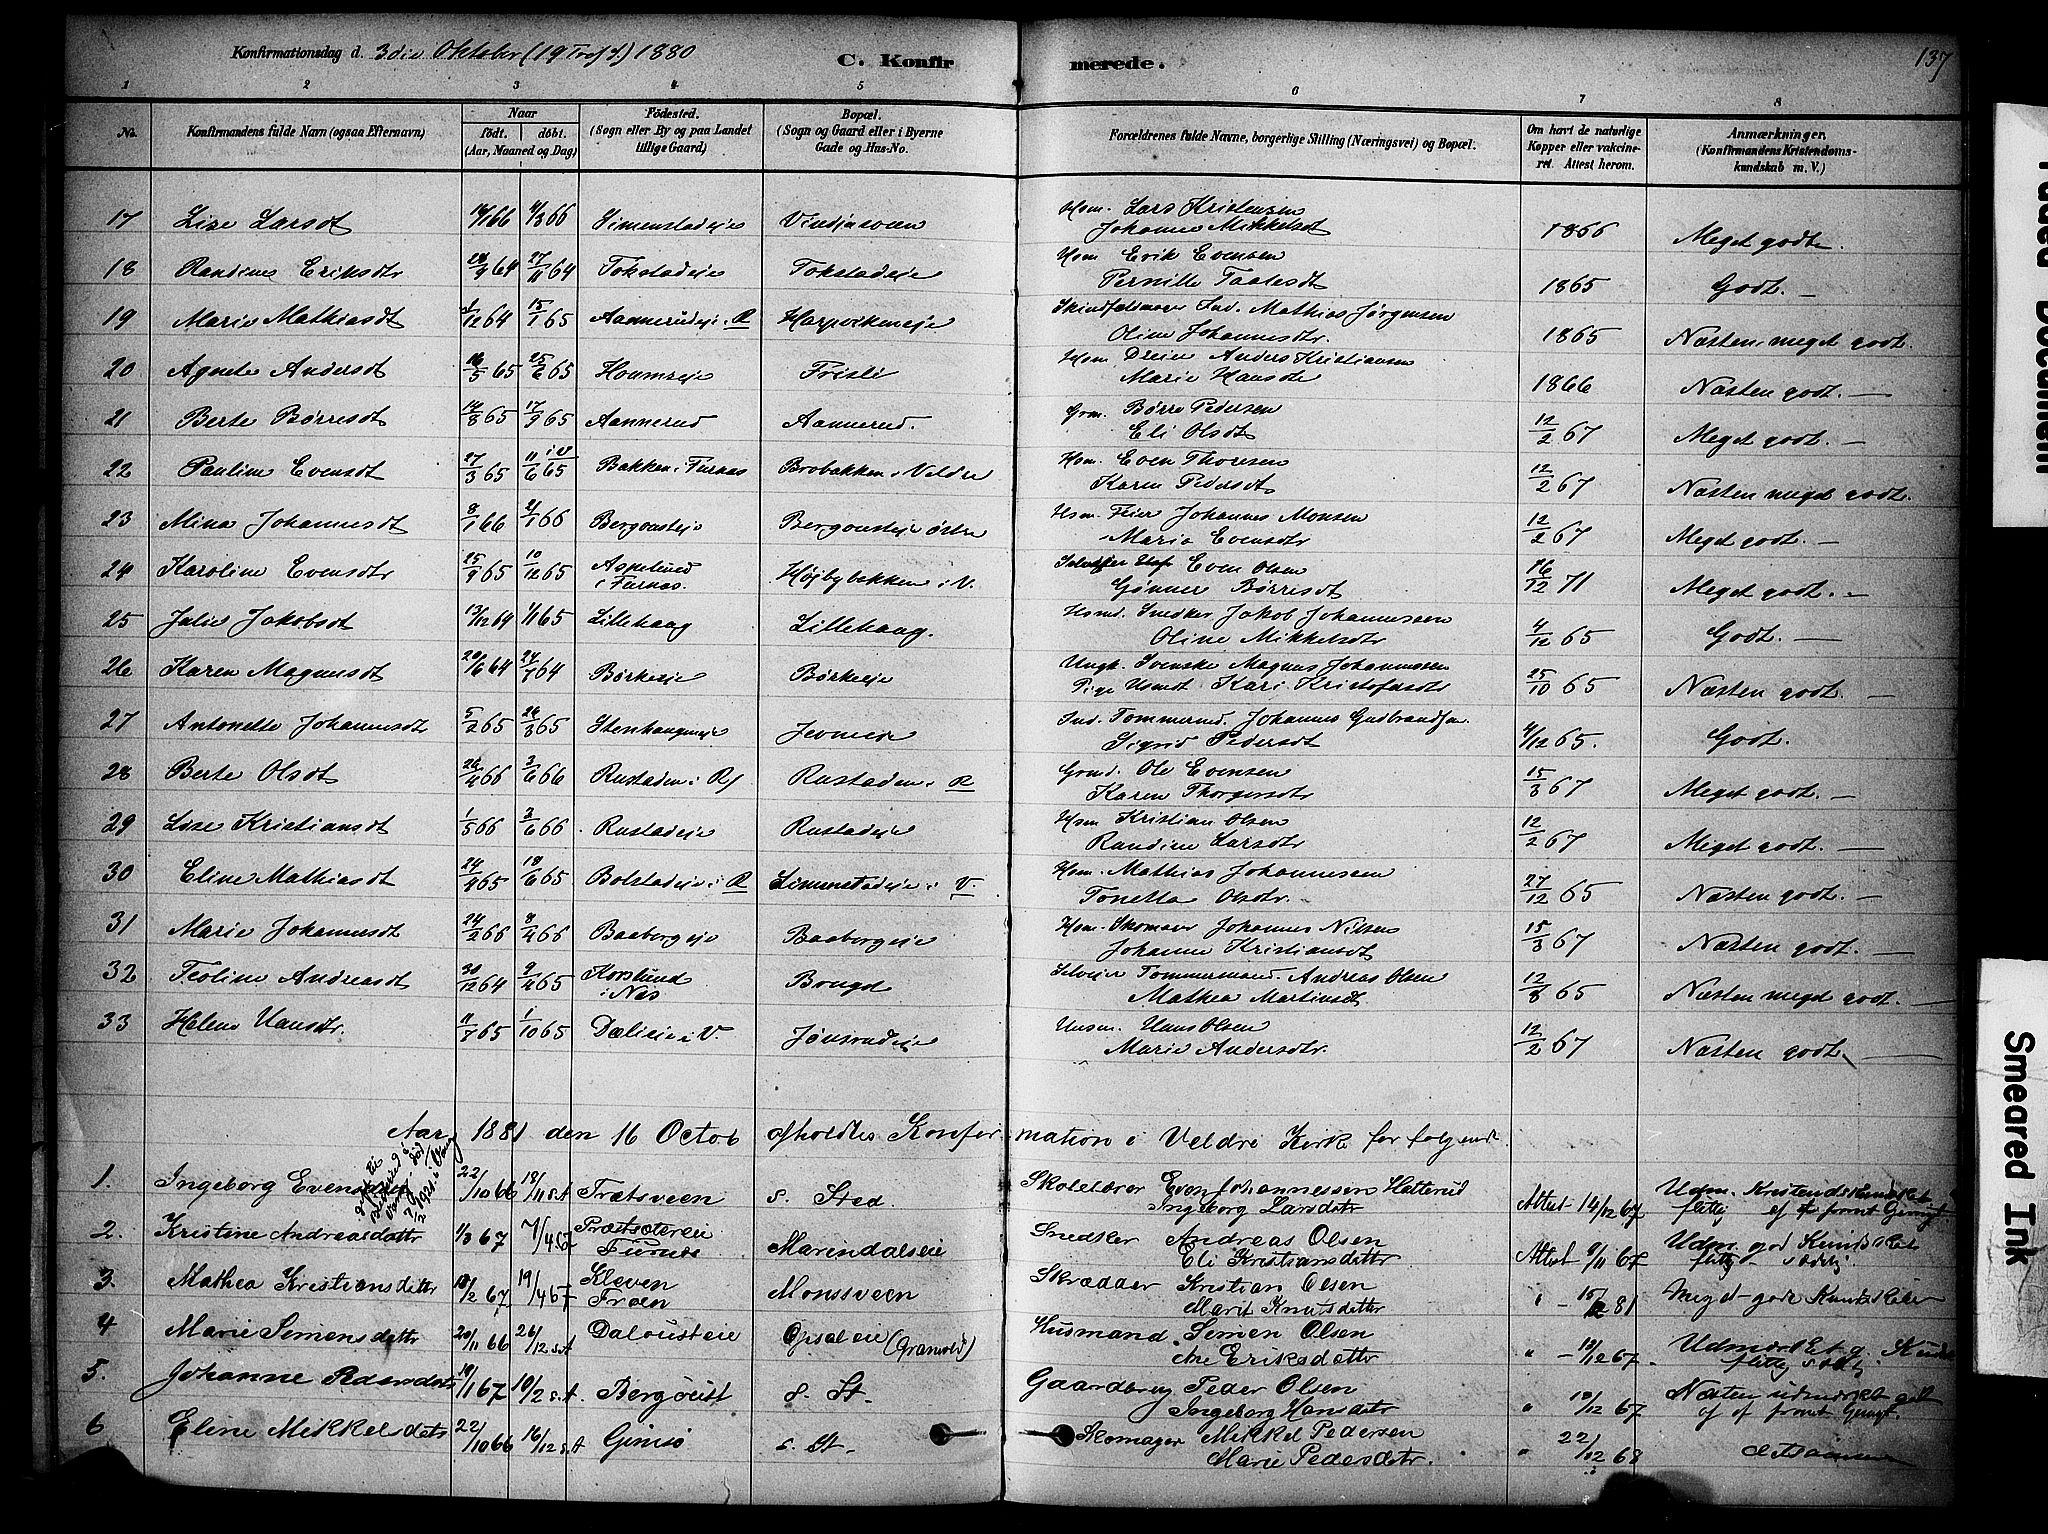 Konfirmationsdag d. 3die Oktober (19 1880
C. Konfirmerede.
137
1 2 3 4 5 6 7 8
No. Konfirmandens fulde Navn (ogsaa Efternavn) Naar født. døbt. (Aar, Maaned og Dag) Fødested. (Sogn eller By og paa Landet tillige Gaard) Bopæl. (Sogn og Gaard eller i Byerne Gade og Hus-No. Forældrenes fulde Navne, borgerlige Stilling (Næringsvei) og Bopæl. Om havt de naturlige Kopper eller vakcineret. Attest herom. Anmærkninger. (Konfirmandens Kristendomskundskab m. V.)
17 Lise Larsdt 66 4/3 66 Simenstadeje Vindjusveen Hsm. Lars Kristensen
Johanne Mikkelsdt 1866 Meget godt.
18 Randine Eriksdtr 64 27/11 64 Tokstadeje Tokstadeje Hsm Erik Evensen
Pernille 1865 Godt. —
19 Marie Mathiasdt 1/12 64 15/1 65 Aannerudeje i R Harpvikeneje Ind. Mathias Jørgensen
Oline Johannesdtr. 1865 Næsten meget godt.
20 Agnete Andersdt 16/5 65 25/6 65 Houmseje Frisli Hsm Dreier Anders Kristiansen
Marie Hansdt 1866 Næsten godt. —
21 Berte Børresdt 14/8 65 17/9 65 Aannerud Aannerud. Grm. Børre Pedersen
Eli Olsdt 12/2 67 Meget godt. —
22 Pauline Evensdt 27/3 65 11/6 65 Bakken i Furnæs Brobakken i Veldre Hsm. Even Thoresen
Karen Pedersdt 12/2 67 Næsten meget godt.
23 Mina Johannesdt 8/1 66 21/1 66 Bergousteje Bergousteje østre Hsm. Feier Johannes Monsen
Marie Evensdtr 12/2 67 Meget godt. —
24 Karoline Evensdtr 25/9 65 10/12 65 Aspelund i Furnæs. Højbybakken i V. Even Olsen
Gønner Børresdt 16/12 71 Meget godt. —
25 Julie Jakobsdt 13/12 64 1/1 65 Lillehaag Lillehaag. Hsmd. Snedker Jakob Johannessen
Oline Mikkelsdtr 4/12 65 Godt. —
26 Karen Magnusdt 20/6 64 24/7 64 Børkeeje Børkeeje Ungk. Svenske Magnus Johannessen
Pige Kari Kristofersdtr 25/10 65 Næsten godt. —
27 Antonette Johannesdt 5/2 65 26/3 65 Stenhaugeneje Jevneeje Ind. Tømmermd. Johannes Gudbrandsen
Sigrid Pedersdt 4/12 65. Godt.
28 Berte Olsdt 26/4 66 3/6 66 Rustaden i R Rustaden i R Grmd. Ole Evensen
Karen Thorgersdtr 15/3 67 Meget godt. —
29 Lise Kristiansdt 1/5 66 3/6 66 Rustadeje Rustadeje Hsm Kristian Olsen
Randine Larsdtr 12/2 67 Meget godt. —
30 Eline Mathiasdt 24/4 65 18/6 65 Bolstadeje i R Simenstadeje i V. Hsm. Mathias Johannessen
Tonetta Olsdtr. 27/12 65 Næsten godt. —
31 Marie Johannesdt 24/2 66 8/4 66 Baaborgeje Baaborgeje Hsm. Skomager Johannes Nilsen
Johanne Kristiansdt 15/3 67 Næsten godt. —
32 Teoline Andreasdt 30/12 64 9/4 65 Korslund i Næs Brugd Selveier Tømmermand Andreas Olsen
Mathea Martinsdt 12/8 65 Næsten meget godt. —
33 Helene Hansdtr. 11/9 65 1/10 65 Dælieje i V. Jønsrudeje Hans Olsen
Marie Andersdtr. 12/2 67 Næsten godt. —
Aar 1881 den 16 Octob afholdtes Konfirmation i Veldre Kirke for følgende
1. Ingeborg Evensdatter 22/10 66 18/11 s.A Frætsveen s. Sted Skolelærer Even Johannessen Hatterud
Ingeborg Larsdatr Attest 14/12 67 Udm. Kristendskundskab
flittig
2. Kristine Andreasdattr 1/3 67 7/4 67 Furnæs Marindalseie Snedker Andreas Olsen
Eli Kristiansdattr Attest 8/11 67 Udm. god Kundskab
flittig sædelig
3. Mathea Kristiansdattr 18/2 67 19/4 67 Kleven Froen Monssveen Skrædder Kristian Olsen
Marit Knutsdattr " – 15/ 81 Meget gode Kundskaber
4 Marie Simensdattr 20/11 66 26/12 s.A Dalousteie Opsaleie (Granvold) Husmand Simen Olsen
Ane Eriksdattr " – 18/12 67 Udmærket g. Kundsk
flittig sædelig
5. Johanne Pedersdatr 19/1 67 10/2 s.A Bergoust s. St. Gaardbrug Peder Olsen
Ingeborg Hansdatr " 18/12 67 Næsten udmærket godt
6 Eline Mikkelsdatr 22/10 66 16/12 s.A Gimsø s. St. Skomager Mikkel Pedersen
Marie Pedersdattr. " 22/12 68
Faded Document
Smeared Ink